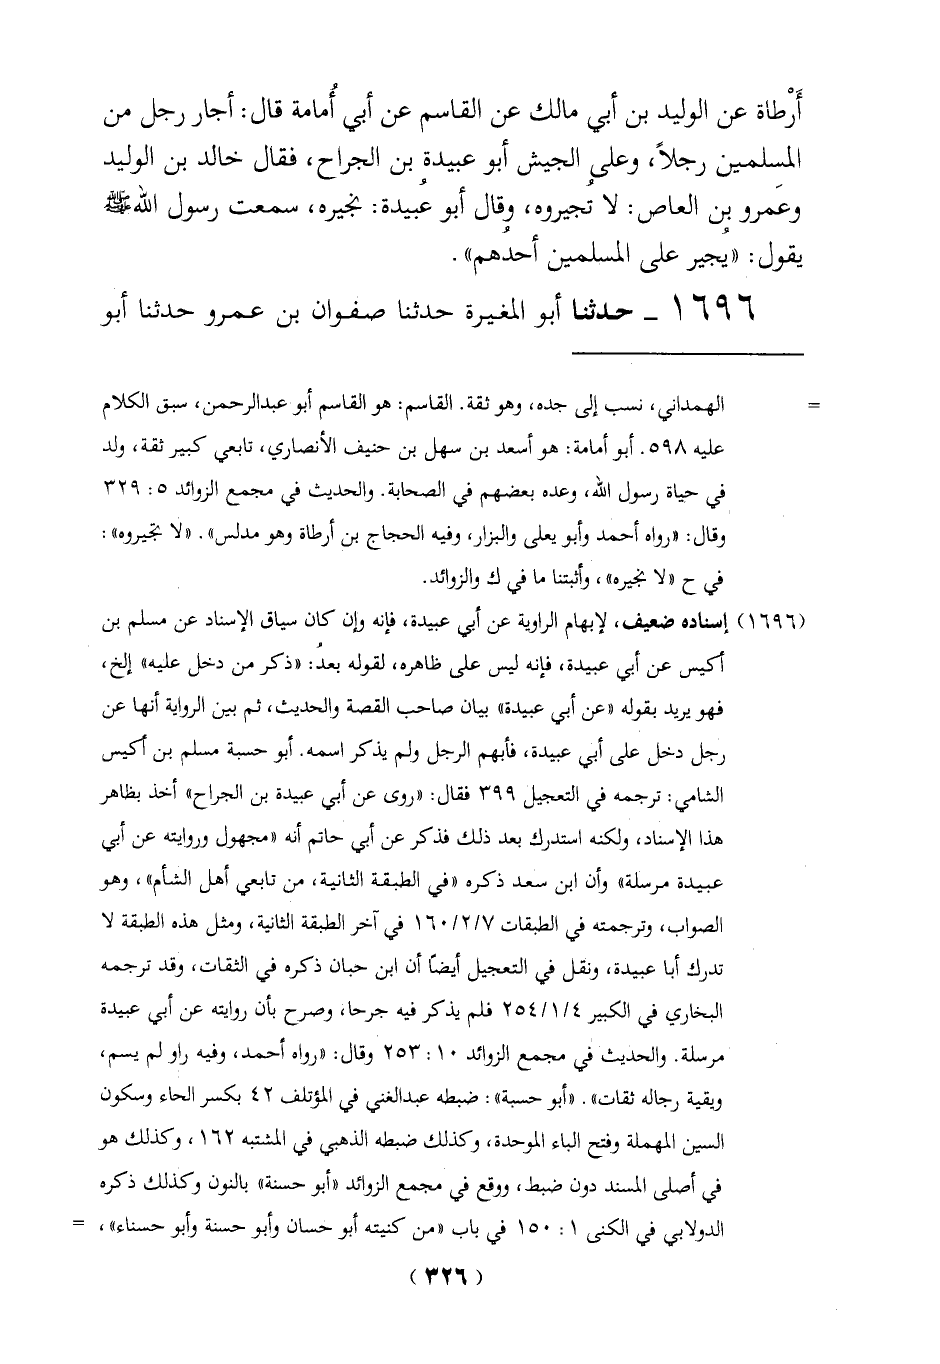 أَرْطاة عن الوليد بن أبي مالك عن القاسم عن أبي أُمامة قال: أجار رجل من
المسلمين رجلاً، وعلى الجيش أبو عبيدة بن الجراح، فقال خالد بن الوليد
وعَمرو بن العاص: لا تُجيروه، وقال أبو عبيدة: نُجيره، سمعت رسول الله ﷺ
يقول: «يُجير على المسلمين أحدُهم».
١٦٩٦ ـ حدثنا أبو المغيرة حدثنا صفوان بن عمرو حدثنا أبو
= الهمداني، نسب إلى جده، وهو ثقة. القاسم: هو القاسم أبو عبدالرحمن، سبق الكلام
عليه ٥٩٨. أبو أمامة: هو أسعد بن سهل بن حنيف الأنصاري، تابعي كبير ثقة، ولد
في حياة رسول الله، وعده بعضهم في الصحابة. والحديث في مجمع الزوائد ٥: ٣٢٩
وقال: «رواه أحمد وأبو يعلى والبزار، وفيه الحجاج بن أرطاة وهو مدلس». «لا تجيروه»:
في ح «لا نجيره»، وأثبتنا ما في ك والزوائد.
(١٦٩٦) إسناده ضعيف، لإبهام الراوية عن أبي عبيدة، فإنه وإن كان سياق الإسناد عن مسلم بن
أكيس عن أبي عبيدة، فإنه ليس على ظاهره، لقوله بعدُ: «ذكر من دخل عليه» إلخ،
فهو يريد بقوله «عن أبي عبيدة» بيان صاحب القصة والحديث، ثم بين الرواية أنها عن
رجل دخل على أبي عبيدة، فأبهم الرجل ولم يذكر اسمه. أبو حسبة مسلم بن أكيس
الشامي: ترجمه في التعجيل ٣٩٩ فقال: «روى عن أبي عبيدة بن الجراح» أخذ بظاهر
هذا الإسناد، ولكنه استدرك بعد ذلك فذكر عن أبي حاتم أنه «مجهول وروايته عن أبي
عبيدة مرسلة» وأن ابن سعد ذكره «في الطبقة الثانية، من تابعي أهل الشأم»، وهو
الصواب، وترجمته في الطبقات ١٦٠/٢/٧ في آخر الطبقة الثانية، ومثل هذه الطبقة لا
تدرك أبا عبيدة، ونقل في التعجيل أيضاً أن ابن حبان ذكره في الثقات، وقد ترجمه
البخاري في الكبير ٢٥٤/١/٤ فلم يذكر فيه جرحا، وصرح بأن روايته عن أبي عبيدة
مرسلة. والحديث في مجمع الزوائد ١٠: ٢٥٣ وقال: «رواه أحمد، وفيه راو لم يسم،
وبقية رجاله ثقات». «أبو حسبة»: ضبطه عبدالغني في المؤتلف ٤٢ بكسر الحاء وسكون
السين المهملة وفتح الباء الموحدة، وكذلك ضبطه الذهبي في المشتبه ١٦٢، وكذلك هو
في أصلى المسند دون ضبط، ووقع في مجمع الزوائد «أبو حسنة» بالنون وكذلك ذكره
الدولابي في الكنى ١: ١٥٠ في باب «من كنيته أبو حسان وأبو حسنة وأبو حسناء»، =
(٣٢٦)